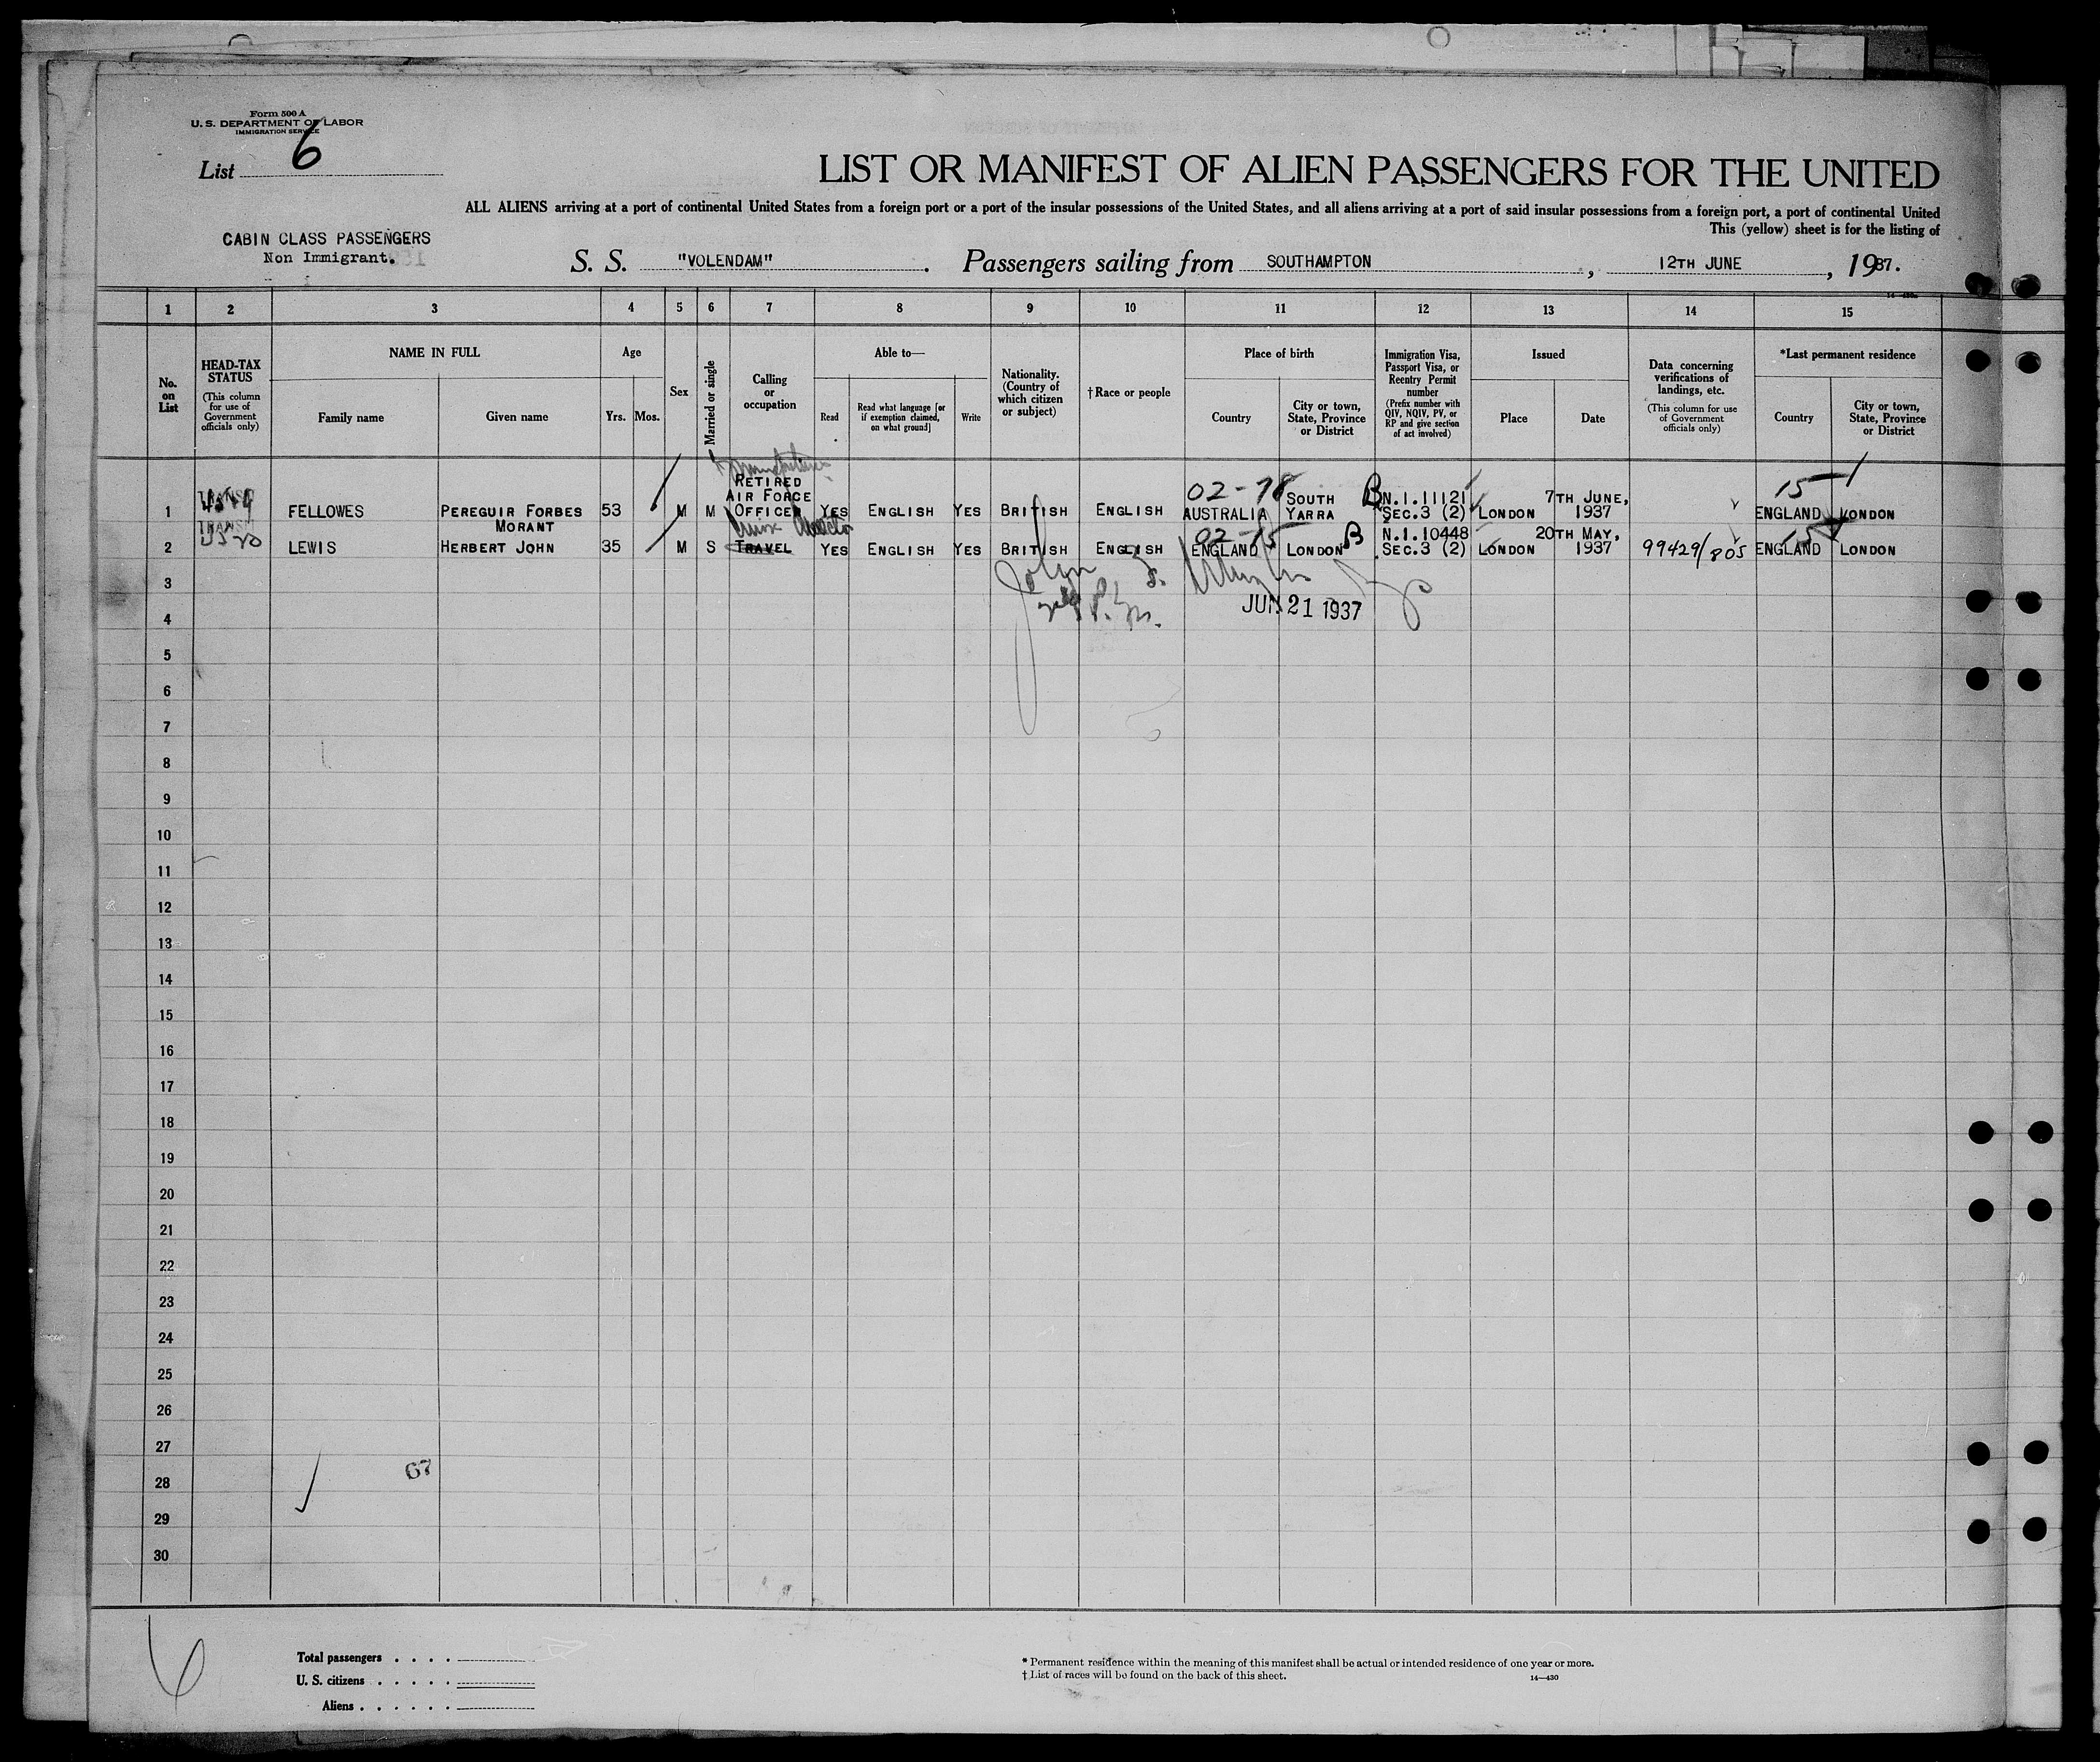 Form 500 A
U. S. DEPARTMENT OF LABOR
IMMIGRATION SERVICE
List 6
LIST OR MANIFEST OF ALIEN PASSENGERS FOR THE UNITED
ALL ALIENS arriving at a port of continental United States from a foreign port or a port of the insular possessions of the United States, and all aliens arriving at a port of said insular possessions from a foreign port, a port of continental United
This (yellow) sheet is for the listing of
CABIN CLASS PASSENGERS
Non Immigrant.
S. S. "VOLENDAM". Passengers sailing from SOUTHAMPTON, 12TH JUNE, 1937.
1 2 3 4 5 6 7 8 9 10 11 12 13 14 15
No. on List
HEAD-TAX STATUS
(This column for use of Government officials only)
NAME IN FULL
Family name
Given name
Age
Yrs. Mos.
Sex
Married or single
Calling or occupation
Able to—
Read
Read what language [or if exemption claimed, on what ground]
Write
Nationality. (Country of which citizen or subject)
† Race or people
Place of birth
Country
City or town, State, Province or District
Immigration Visa, Passport Visa, or Reentry Permit number
(Prefix number with QIV, NQIV, PV, or RP and give section of act involved)
Issued
Place
Date
Data concerning verifications of landings, etc.
(This column for use of Government officials only)
*Last permanent residence
Country
City or town, State, Province or District
1 FELLOWES PEREGUIR FORBES MORANT 53 M M RETIRED AIR FORCE OFFICER YES ENGLISH YES BRITISH ENGLISH 02-78 AUSTRALIA SOUTH YARRA B N.I.11121 SEC.3 (2) LONDON 7TH JUNE, 1937 15 ENGLAND LONDON
2 TRANSIT LEWIS HERBERT JOHN 35 M S TRAVEL YES ENGLISH YES BRITISH ENGLISH 02-15 ENGLAND LONDON B N.I.10448 SEC.3 (2) LONDON 20TH MAY, 1937 99429/805 15 ENGLAND LONDON
3
John
4
JUN 21 1937
5
6
7
8
9
10
11
12
13
14
15
16
17
18
19
20
21
22
23
24
25
26
27
67
28
29
30
6
Total passengers
U. S. citizens
Aliens
* Permanent residence within the meaning of this manifest shall be actual or intended residence of one year or more.
† List of races will be found on the back of this sheet.
14—430